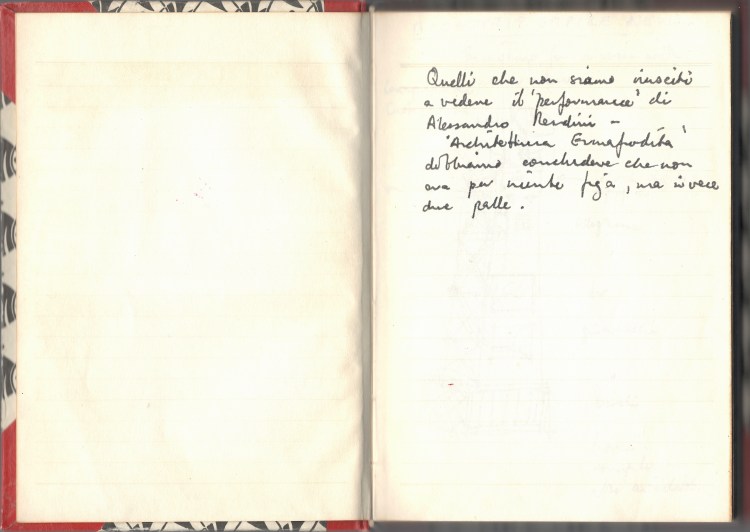 Quelli che non siamo riusciti
a vedere il 'performance' di
Alessandro Mendini –
'Architettura Ermafrodita'
dobbiamo concludere che non
era per niente figa, ma invece
due palle.